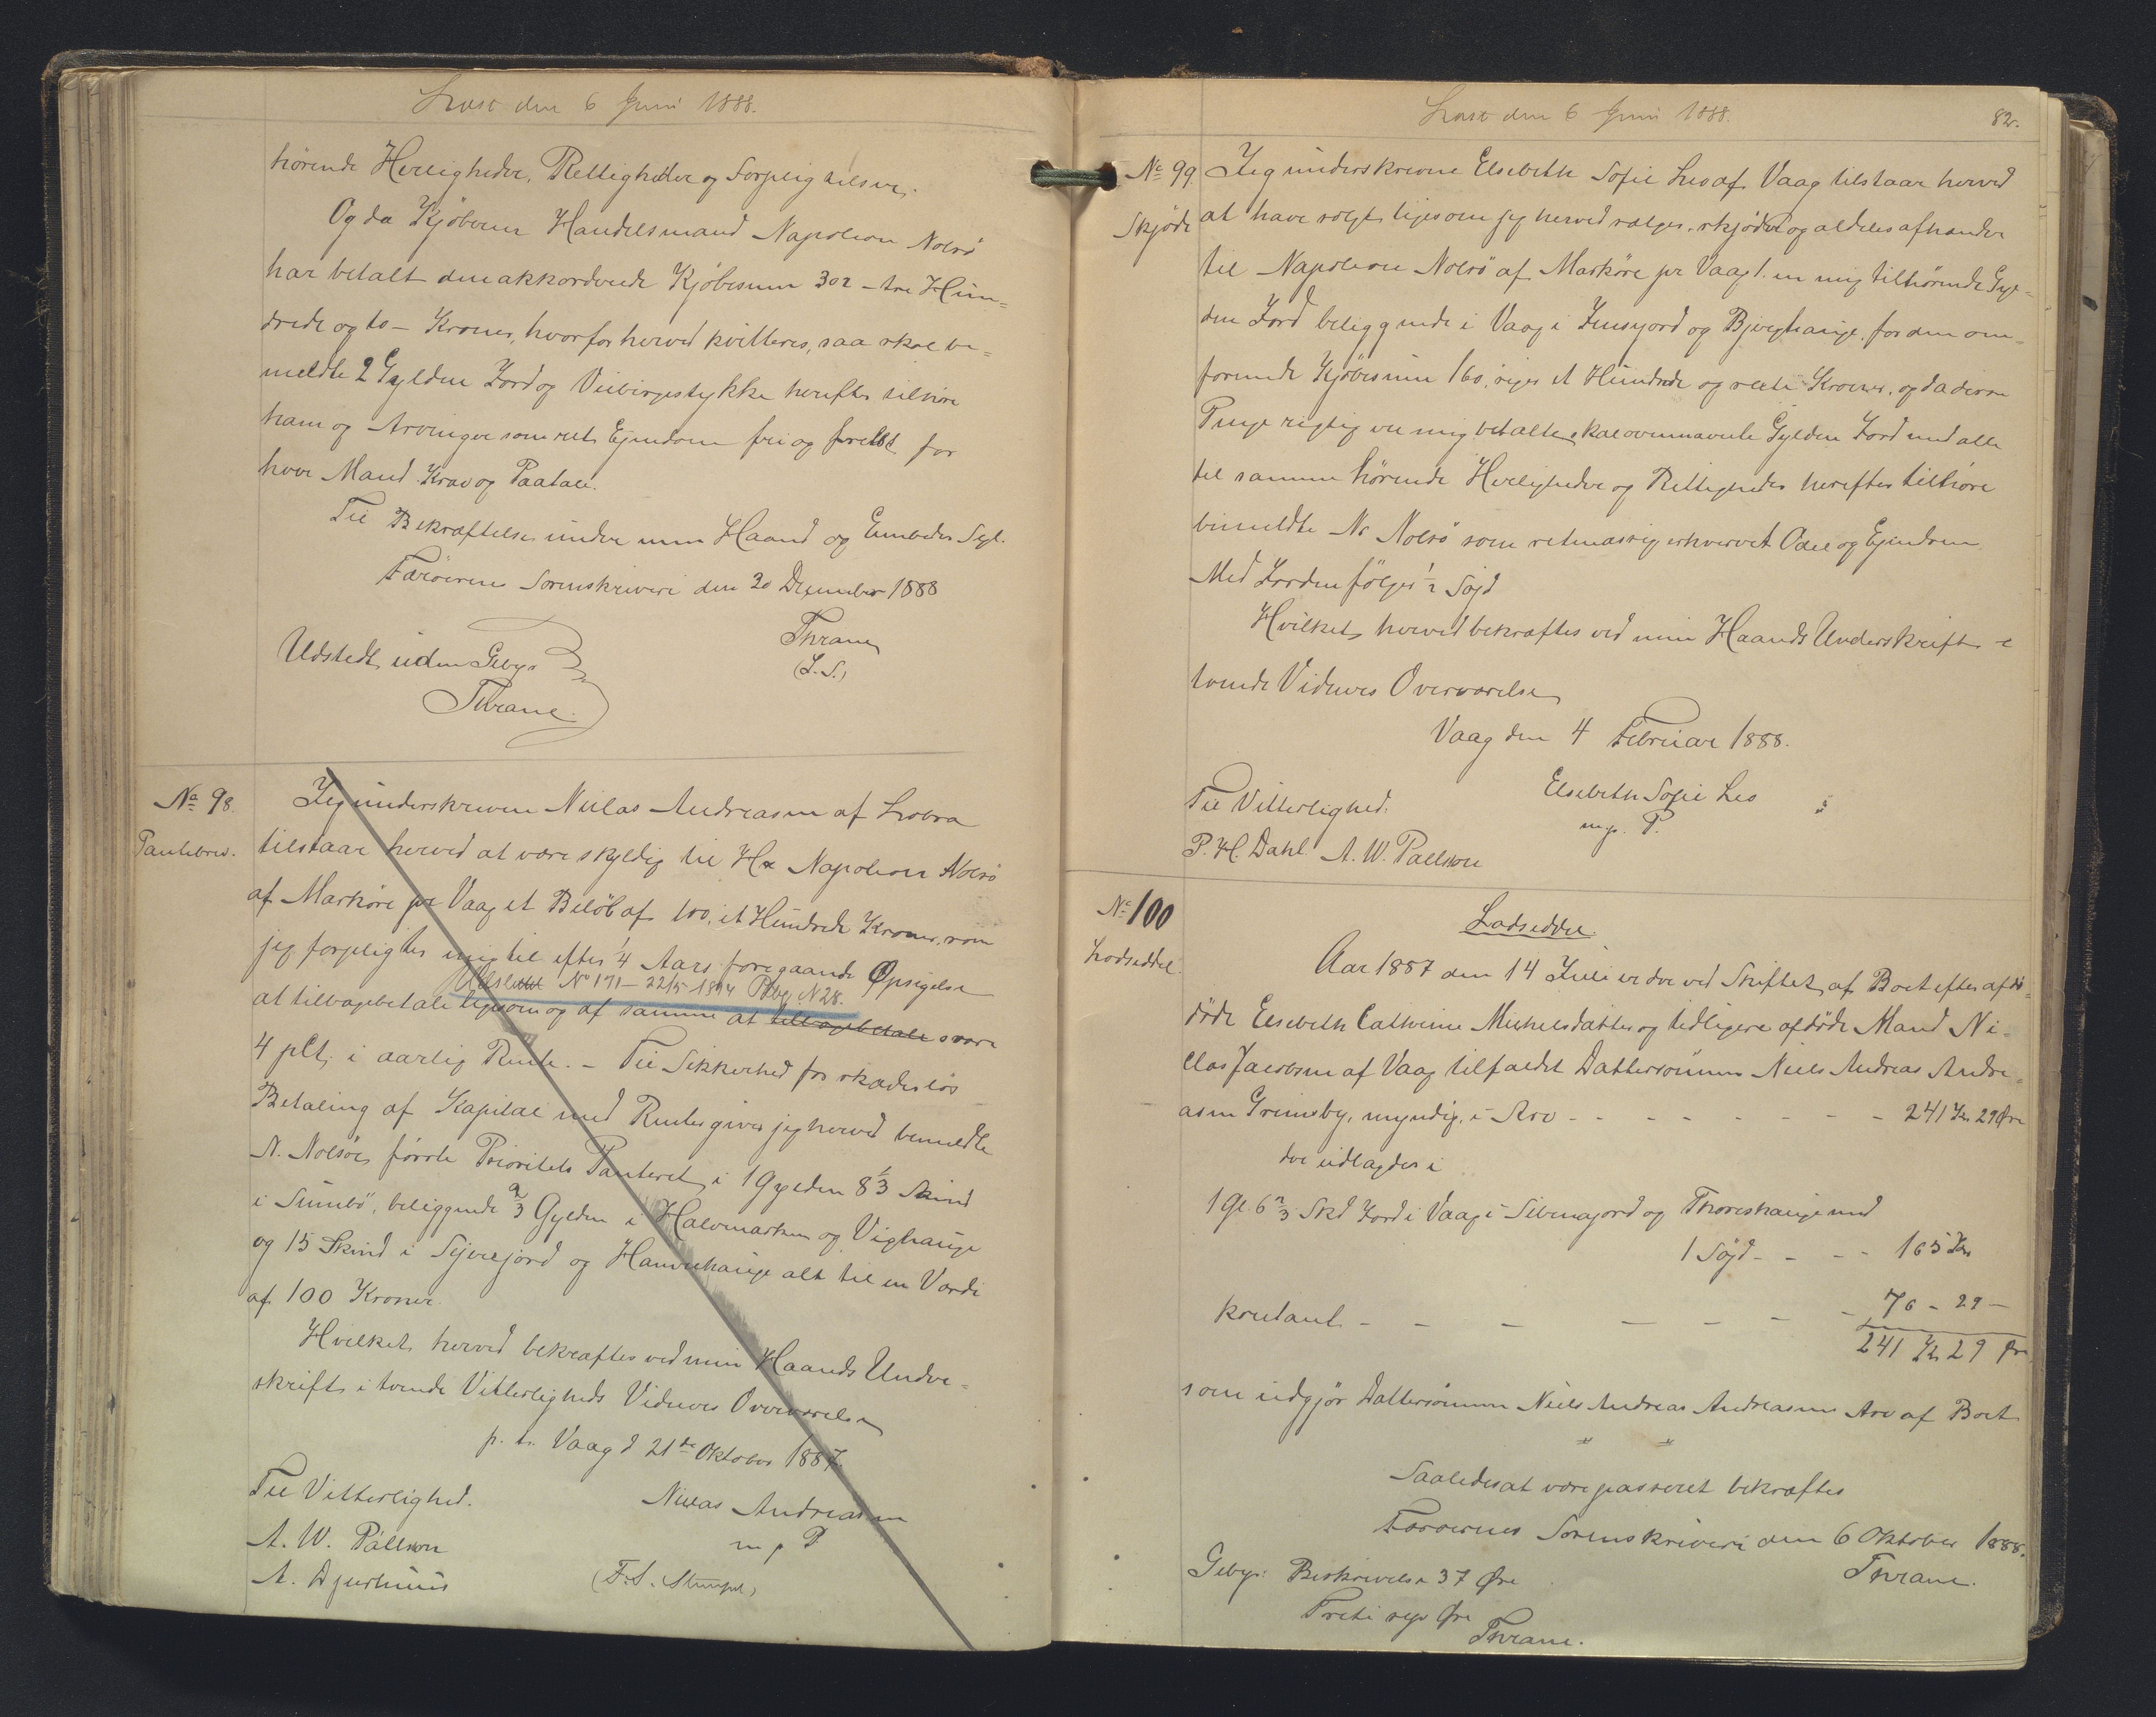 Læst den 6 Juni 1888.
hörende Herligheder, Rettigheder og Forpligtelser.
Og da Kjöberen Handelsmand Napoleon Nolsö
har betalt den akkorderede Kjöbesum 302 – tre Hun=
drede og to – Kroner, hvorfor herved kvitteres, saa skal be=
meldte 2 Gylden Jord og Veibirgestykke herefter tilhöre
ham og Arvinger som ret Ejendom fri og frelst for
hver Mand Krav og Paatale.
Til Bekræftelse under min Haand og Embeds Segl.
Færöernes Sorenskriveri den 20 December 1888
Thrane
(L. S.)
Udstedt uden Gebyr
Thrane.
No 98.
Pantebrev.
Jeg underskrevne Niclas Andreasen af Lobra
tilstaar herved at være skyldig til Hr Napoleon Nolsö
af Marköre pr Vaag et Belöb af 100, et Hundrede Kroner, som
jeg forpligter mig til efter 1/4 Aars foregaaende Opsigelse
Udslettet No 171 – 22/5 1894 Pbg. N 28.
at tilbagebetale ligesom og af samme at tilbagebetale svare
4 pCt. i aarlig Rente. – Til Sikkerhed for skadeslös
Betaling af Kapital med Renter giver jeg herved bemeldte
N. Nolsöe förste Prioritets Panteret i 1 Gylden 8 1/3 Skind
i Sumbö, beliggende 2/3 Gylden i Halvmarken og Vighauge
og 15 Skind i og alt til en Værdi
af 100 Kroner.
Hvilket herved bekræftes ved min Haands Under=
skrift i tvende Vitterligheds Vidners Overværelse
p. t. Vaag d 21de Oktober 1887.
Til Vitterlighed.
Niclas Andreasen
m p P
A. W. Pállson
A. Djurhuus
(F. S. Stempel)
Læst den 6 Juni 1888.
82.
No 99.
Skjöde
Jeg underskrevne Elsebeth Sofie Leo af Vaag tilstaar herved
at have solgt ligesom jeg herved sælger, skjöder og aldeles afhænder
til Napoleon Nolsö af Marköre pr Vaag 1. en mig tilhörende Gyl=
den Jord beliggende i Vaag i og for den om=
forenede Kjöbesum 160, siger et Hundrede og sexti Kroner, og da disse
Penge rigtig er mig betalte skal ovennævnte Gylden Jord med alle
til samme hörende Herligheder og Rettigheder herefter tilhöre
bemeldte N. Nolsö som retmæssig erhvervet Odel og Ejendom.
Med Jorden fölger 1/2 Söjd
Hvilket herved bekræftes ved min Haands Underskrift i
tvende Vidners Overværelse
Vaag den 4 Februar 1888.
Til Vitterlighed:
Elsebeth Sofie Leo
m. p. P.
P. H. Dahl A. W. Pallson
No 100
Lodseddel.
Lodseddel.
Aar 1887 den 14 Juli er der ved Skiftet af Boet efter afdö=
döde Elsebeth Cathrine Michelsdatter og tidligere afdöde Mand Ni=
clas Jacobsen af Vaag tilfaldet Dattersönnen Niels Andreas Andre=
asen Grimsby, myndig, i Arv – – – – – – – 241 Kr. 29 Öre
der udlagdes i
1 Gl. 6 2/3 Skd Jord i Vaag i og med
1 Söjd – – – 165 Kr
kontant – – – – – – – 76 – 29 –
241 Kr 29 Öre
som udgjör Dattersönnen Niels Andreas Andreasens Arv af Boet
Saaledes at være passeret bekræftes
Færöernes Sorenskriveri den 6 Oktober 1888.
Thrane.
Gebyr: Beskrivelse 37 Öre
Treti syv Öre
Thrane.